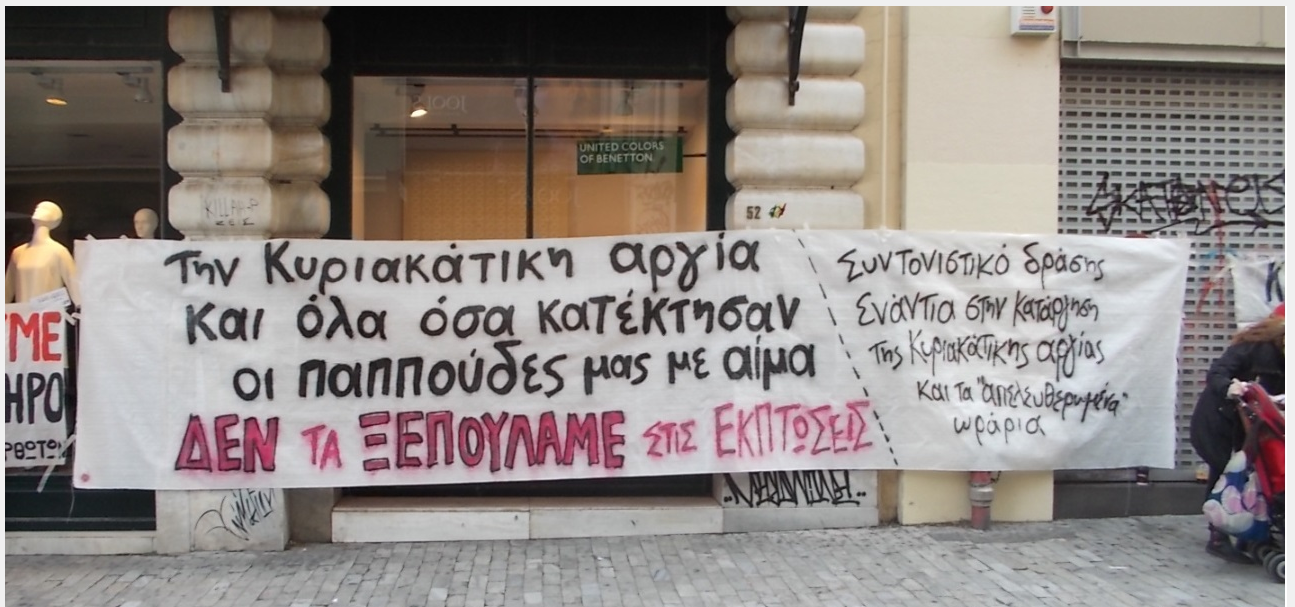 UNITED COLORS
OF BENETTON
52
Την Κυριακάτικη αργία
και όλα όσα κατέκτησαν
οι παππούδες μας με αίμα
ΔΕΝ ΤΑ ΞΕΠΟΥΛΑΜΕ ΣΤΙΣ ΕΚΠΤΩΣΕΙΣ
Συντονιστικό δράσης
Ενάντια στην κατάργηση
της Κυριακάτικης αργίας
και τα "απελευθερωμένα"
ωράρια
ΜΕ
ΗΡΟ